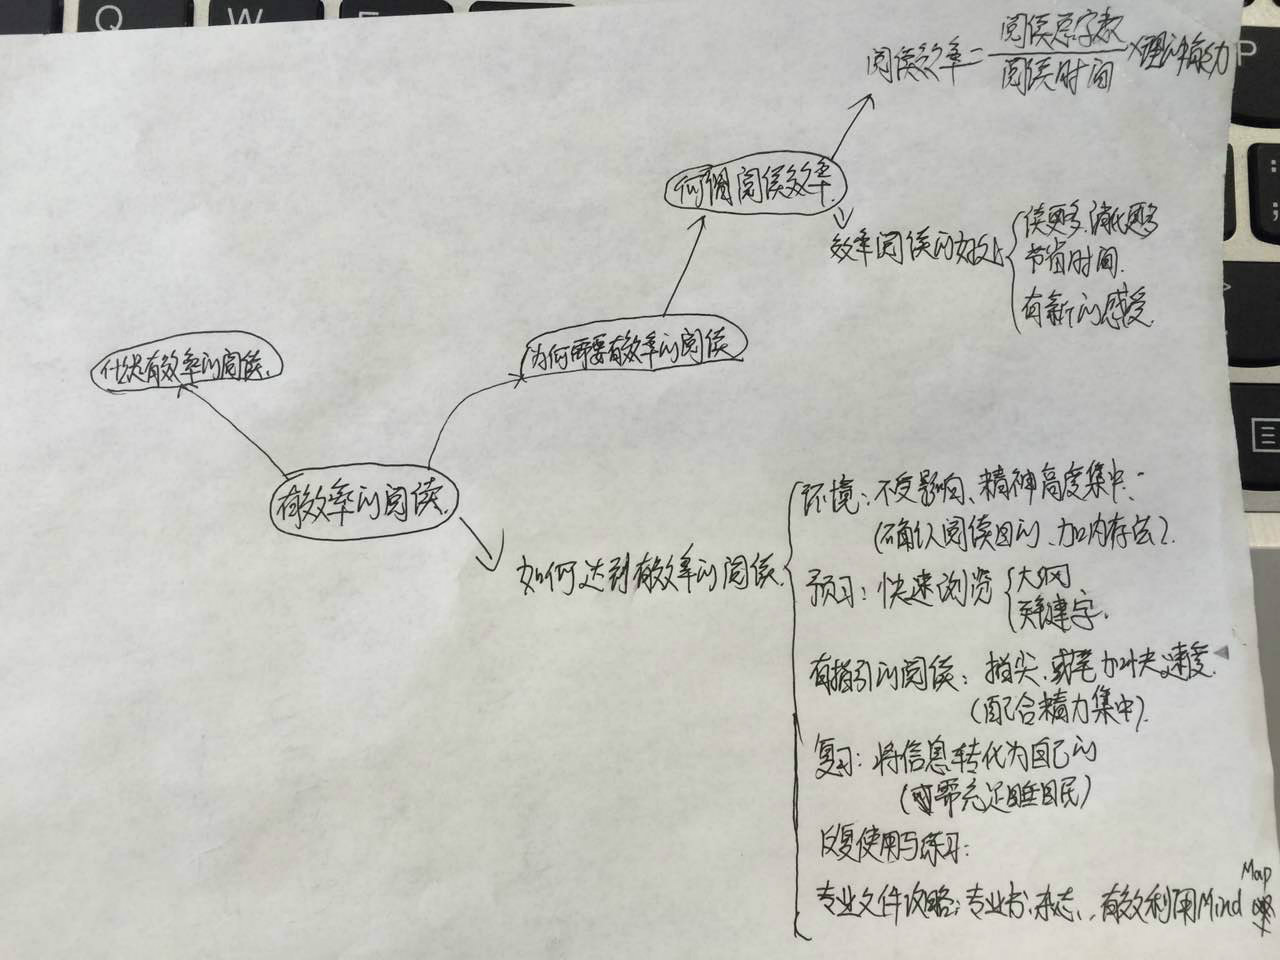 Q
W
E
P
阅读效率=阅读总字数/阅读时间×理解能力
何谓阅读效率
效率阅读的好处
读更多,消化更多
节省时间.
有新的感受.
什么是有效率的阅读.
为何需要有效率的阅读
有效率的阅读.
如何达到有效率的阅读.
环境:不受影响、精神高度集中.
(确认阅读目的、加内存法).
预习:快速浏览
大纲
关键字.
有指引的阅读:指尖、或笔加快速度.
(配合精力集中).
复习:将信息转化为自己的
(需充足睡眠)
反复使用与练习:
专业文件攻略:专业书、杂志、有效利用Mind
Map